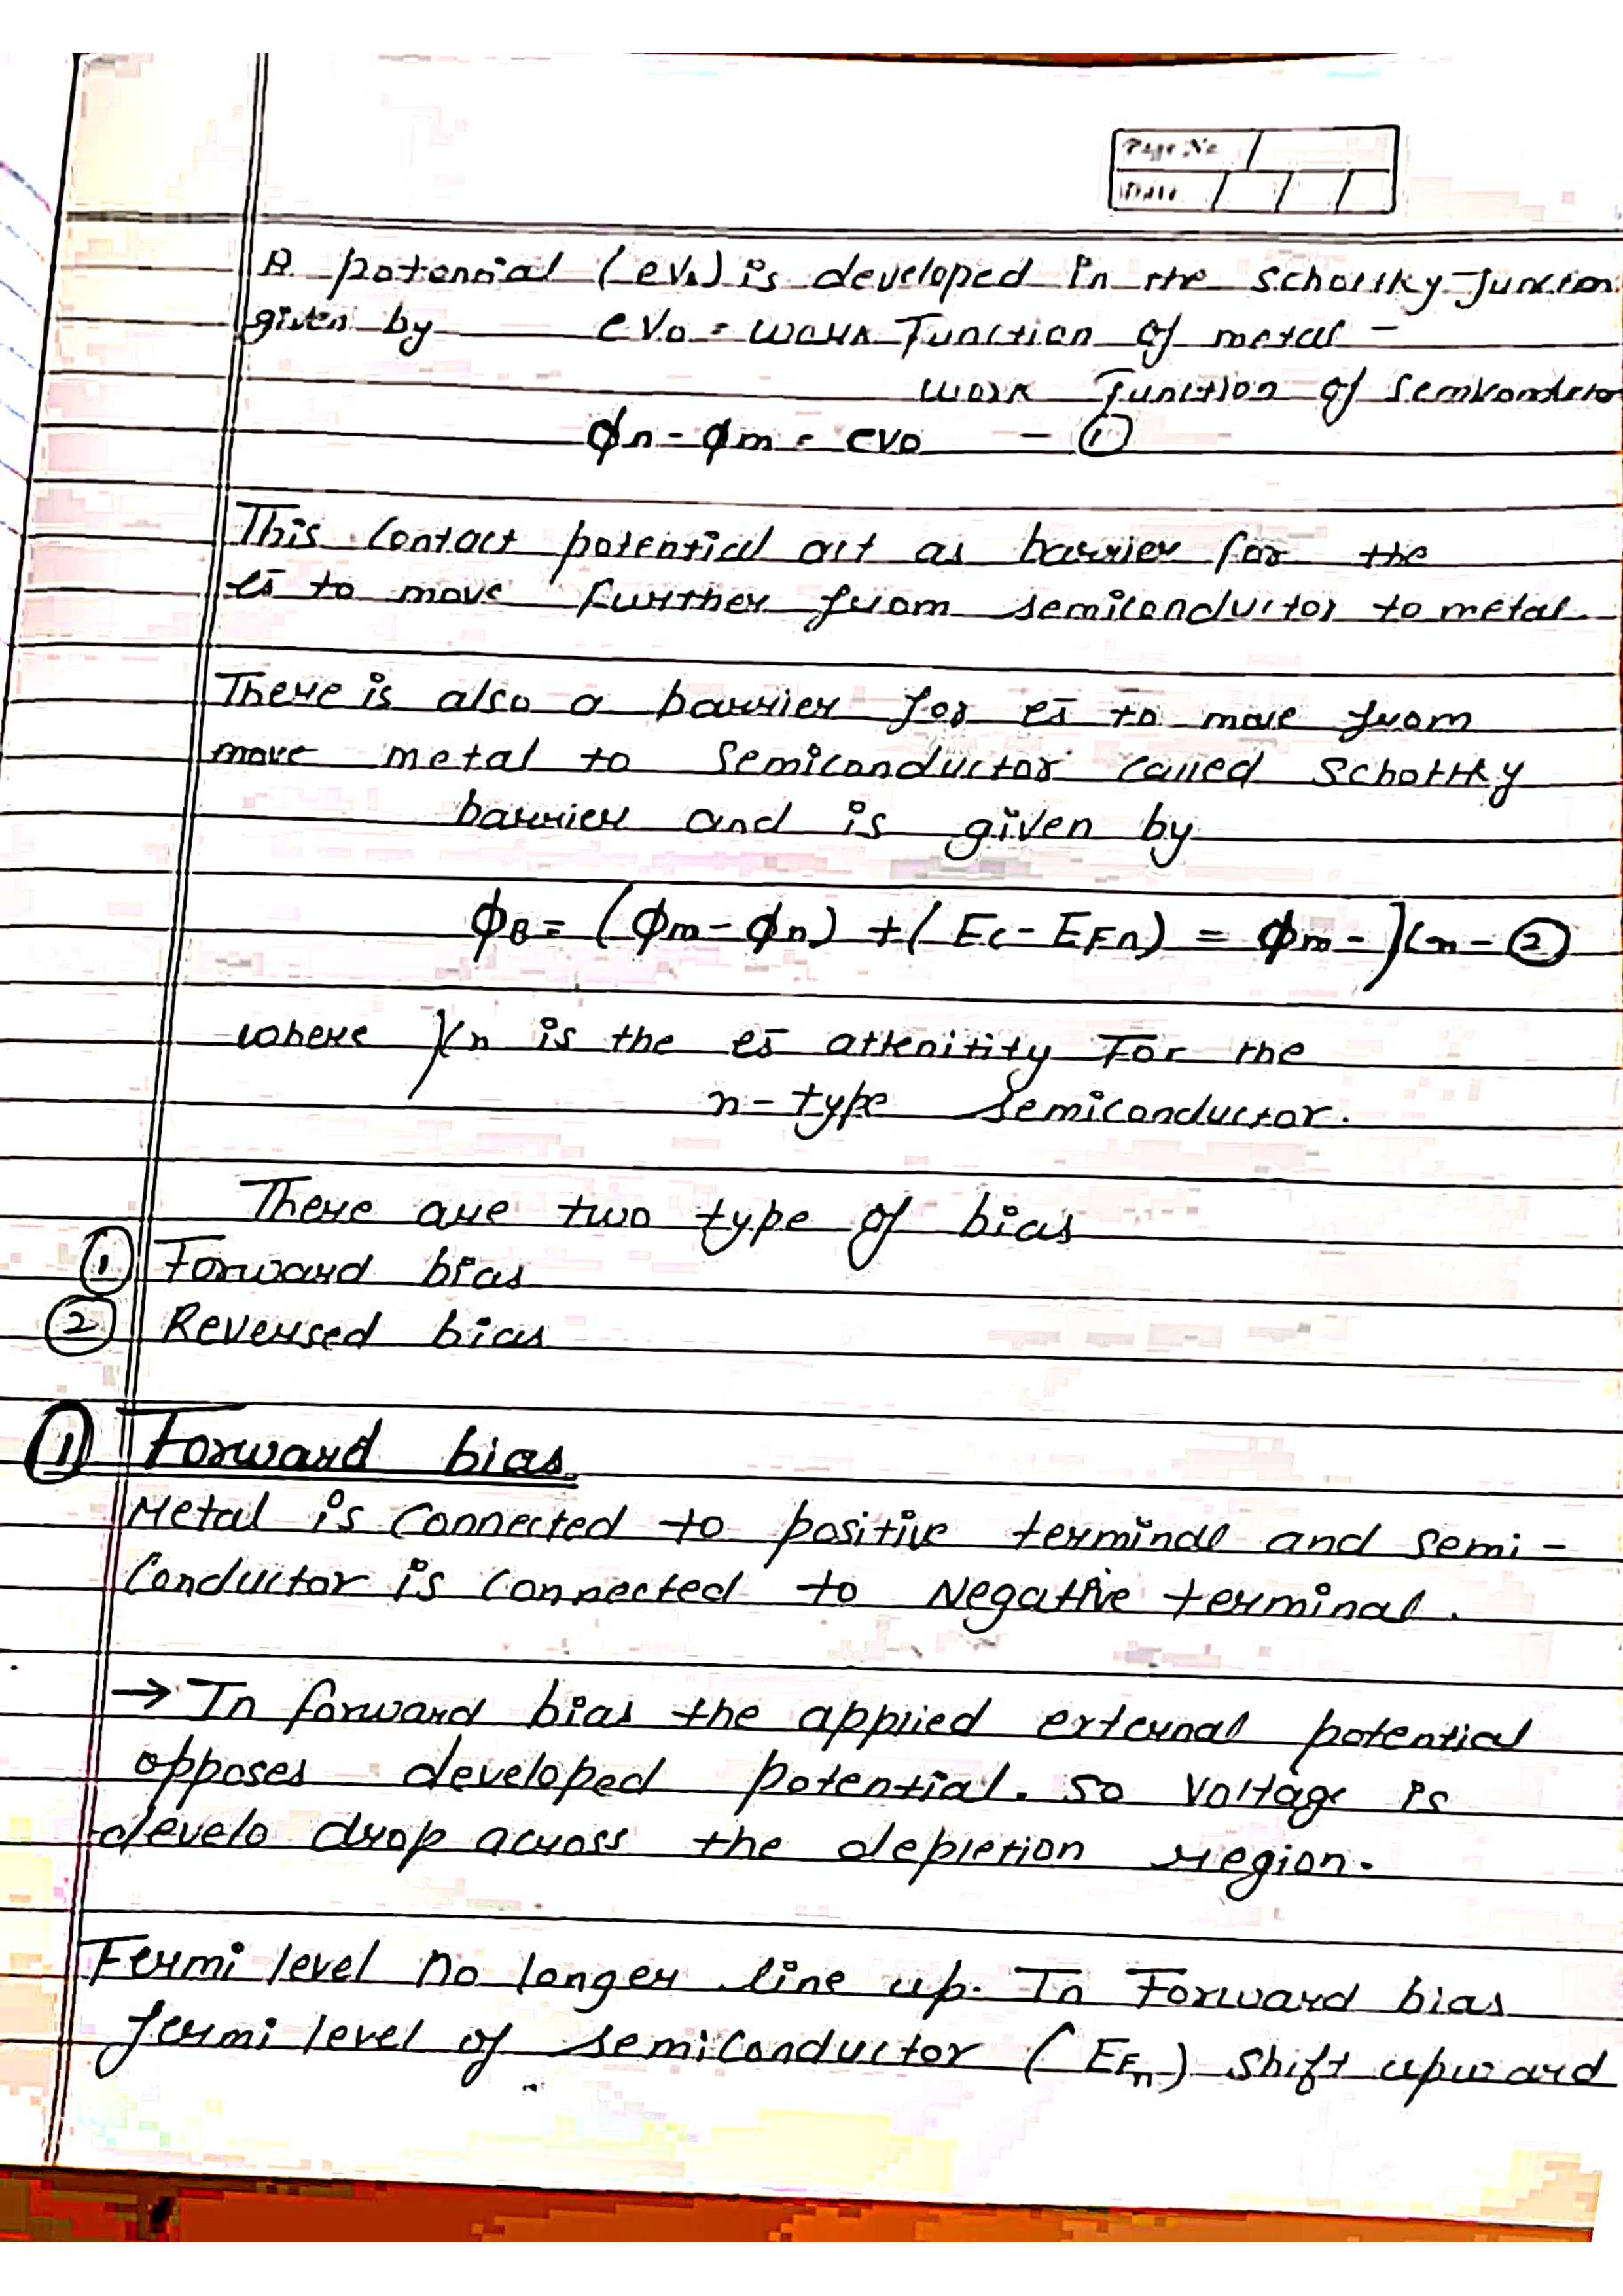 Page No.
Date
A potential (eV₀) is developed in the Schottky Junction
given by eV₀ = work Function of metal -
work Function of Semikondctor
ϕn - ϕm = eV₀ - ①
This Contact potential act as barrier for the
es̄ to move further from semiconductor to metal
There is also a barrier for es̄ to move from
move metal to Semiconductor called Schottky
barrier and is given by
ϕB = (ϕm - ϕn) + (Ec - EFn) = ϕm - χn - ②
where χn is the es̄ attenitity For the
n-type semiconductor.
There are two type of bias
① Forward bias
② Reversed bias
① Forward bias
Metal is Connected to positive terminal and semi-
Conductor is connected to Negative terminal.
→ In forward bias the applied external potential
opposes developed potential. So Voltage is
develo drop across the depletion region.
Fermi level no longer line up. In Forward bias
fermi level of semiconductor (EFn) Shift upward